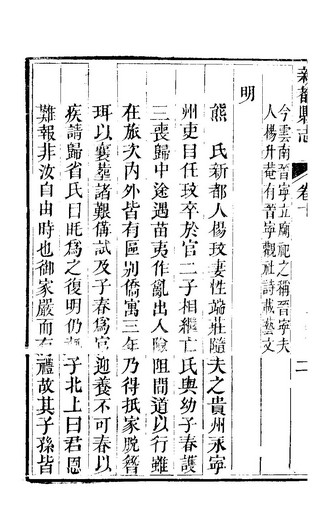 新都縣志 卷十 二
今雲南晉寧立廟祀之稱晉寧夫
人楊升菴有晉寧觀社詩載藝文
明
熊氏新都人楊玫妻性端莊隨夫之貴州永寧
州吏目任玫卒於官二子相繼亡氏與幼子春護
三喪歸中途遇苗夷作亂出入險阻間道以行雖
在旅次內外皆有區別僑寓三年乃得抵家脫簪
珥以襄葬諸艱備試及子春爲官迎養不可春以
疾請歸省氏曰眊爲之復明仍 子北上曰君恩
難報非汝自由時也御家嚴而有禮故其子孫皆